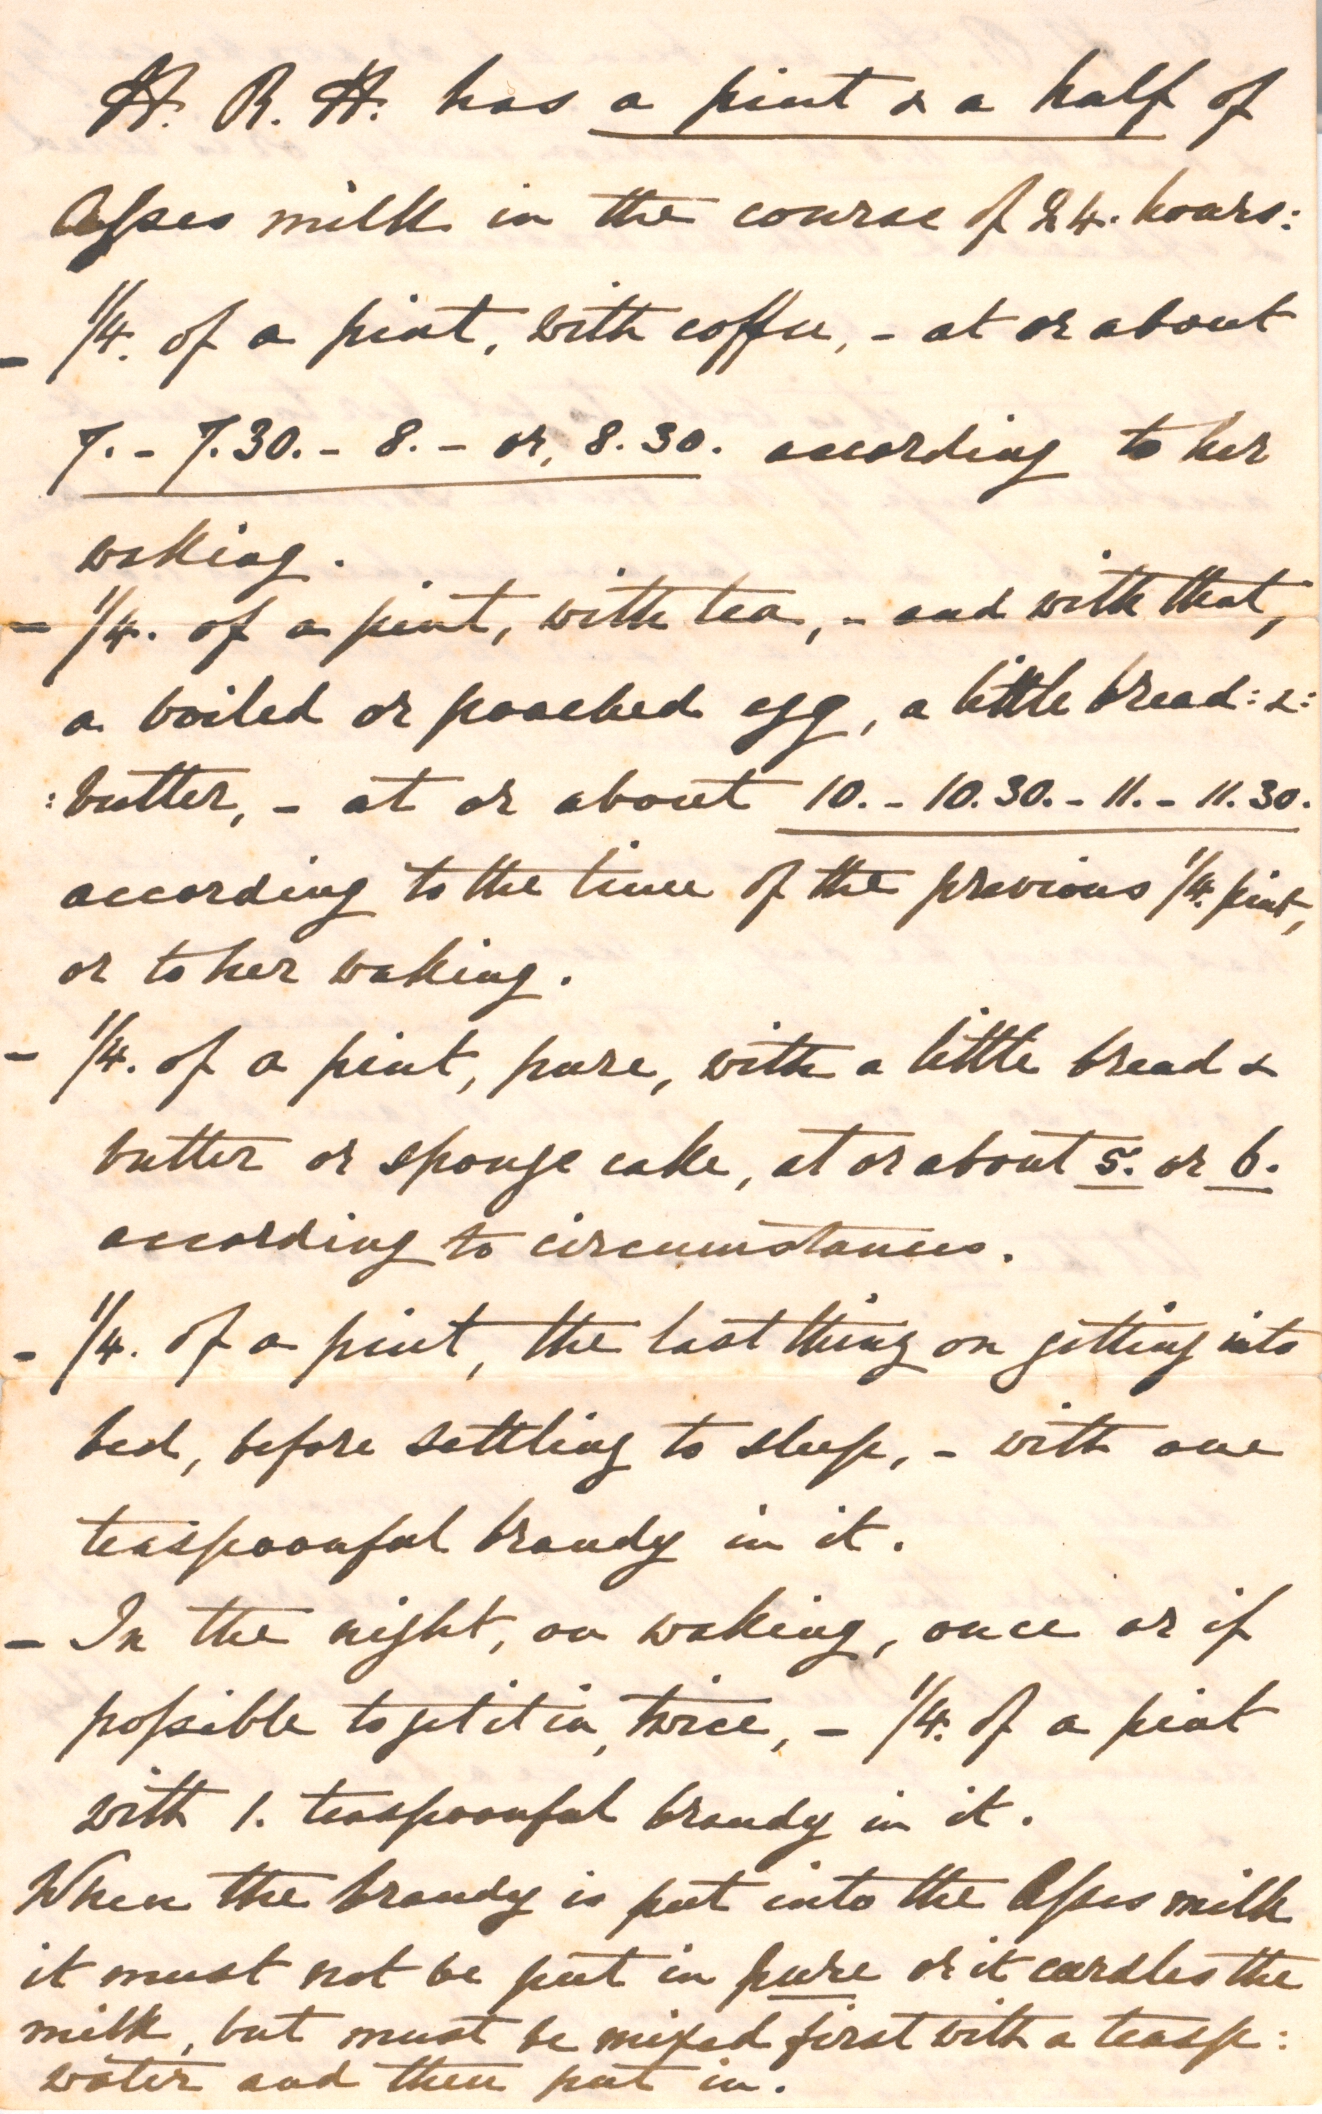 H. R. H. has a pint & a half of
Asses milk in the course of 24. hours:
- 1/4. of a pint, with coffee, - at or about
7. - 7.30. - 8. - or, 8.30. according to her
waking.
- 1/4. of a pint, with tea, - and with that,
a boiled or poached egg, a little bread:&:
:butter, - at or about 10. - 10.30. - 11. - 11.30.
according to the time of the previous 1/4. pint,
or to her waking.
- 1/4. of a pint, pure, with a little bread &
butter or sponge cake, at or about 5. or 6.
according to circumstances.
- 1/4. of a pint, the last thing on getting into
bed, before settling to sleep, - with one
teaspoonful brandy in it.
- In the night, on waking, once or if
possible to get it in, twice, - 1/4. of a pint
with 1. teaspoonful brandy in it.
When the brandy is put into the Asses milk
it must not be put in pure or it curdles the
milk, but must be mixed first with a teasp:
water and then put in.